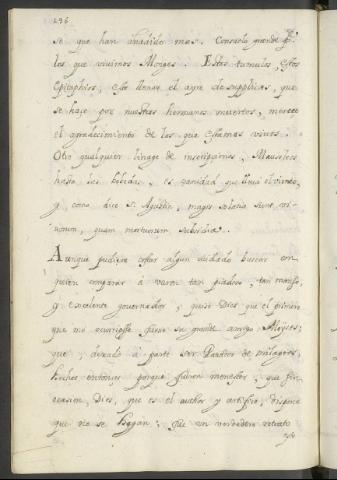 296
se que han añadido mas. Consuelo grande p.ª
los que vivimos Monges. Estos tumulos, estos
Epitaphios, este llenar el ayre de supplicas, que
se haze por nuestros hermanos muertos, merece
el agradecimiento de los que estamos vivos.
Otro qualquier linage de inscripciones, Mausoleos
hasta las bobedas, es vanidad que lleva el viento,
y como dice S. Agustin, magis solatia sunt vi-
vorum, quam mortuorum subsidia.
Aunque pudiera costar algun cuidado buscar con
quien comparar á varon tan piadoso, tan manso,
y excelente governador; quiso Dios que el primero
que me ocurriesse fuesse su grande amigo Moyses;
que, dexado á parte ser Hazedor de milagros,
hechos entonces porque fueron menester, que sin
ocasion, Dios, que es el author y artifice, dispone
que no se hagan; fue un verdadero retrato